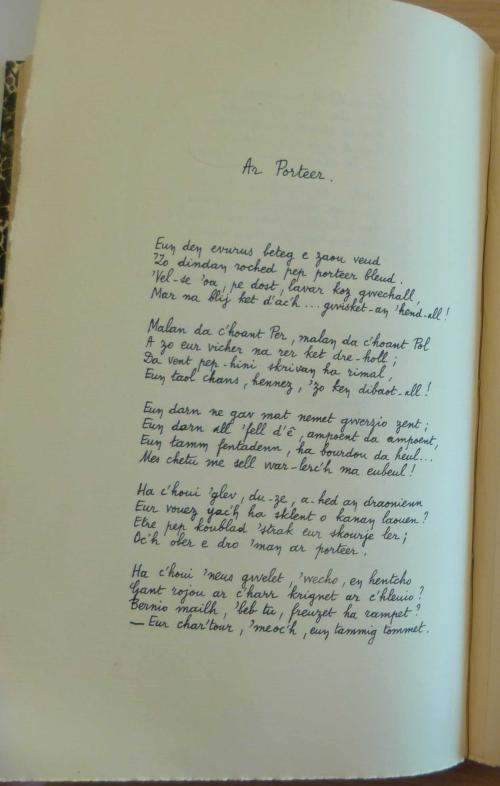 Ar Porteer.
Eun den evurus beteg e zaou veud
'Zo dindan roched pep porteer bleud.
'Vel-se 'oa, pe dost, lavar koz gwechall,
Mar na blij ket d'ac'h... gwisket-an 'hend-all!
Malan da c'hoant Per, malan da c'hoant Pol
A zo eur vicher na rer ket dre-holl;
Da vent pep-hini skrivan ha rimal,
Eun taol chans, hennez, 'zo ken dibaot-all!
Eun darn ne gav mat nemet gwerzio zent;
Eun darn all 'fell d'ê, ampoent da ampoent,
Eun tamm fentadenn, ha bourdou da heul...
Mes chetu me sell war-lerc'h ma eubeul!
Ha c'houi 'glev, du-ze, a-hed an draonienn
Eur vouez yac'h ha sklent o kanan laouen?
Etre pep koublad 'strak eur skourje ler;
Oc'h ober e dro 'man ar porteer.
Ha c'houi 'neus gwelet, 'wecho, en hentcho
Gant rojou ar c'harr krignet ar c'hleuio?
Bernio mailh, 'beb tu, freuzet ha rampet?
— Eur char'tour, 'meoc'h, eun tammig tommet.